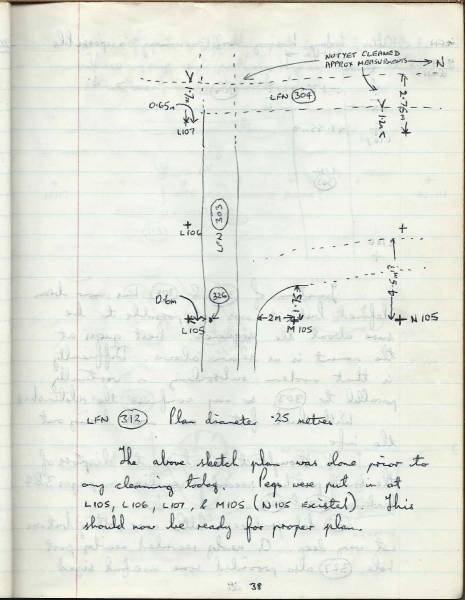 NOT YET CLEANED
APPROX MEASUREMENTS
N
1.7m
LFN 304
2.75m
0.65m
1.2m
L107
L106
LFN 303
4.5m?
0.6m
326
L105
2m
1.75
M105
N105
LFN 312 Plan diameter .25 metres
The above sketch plan was done prior to
any cleaning today. Pegs were put in at
L105, L106, L107, & M105 (N105 existed). This
should now be ready for proper plan.
38